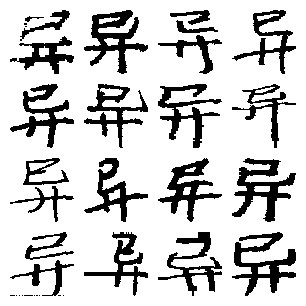 异异异异
异异异异
异异异异
异异异异